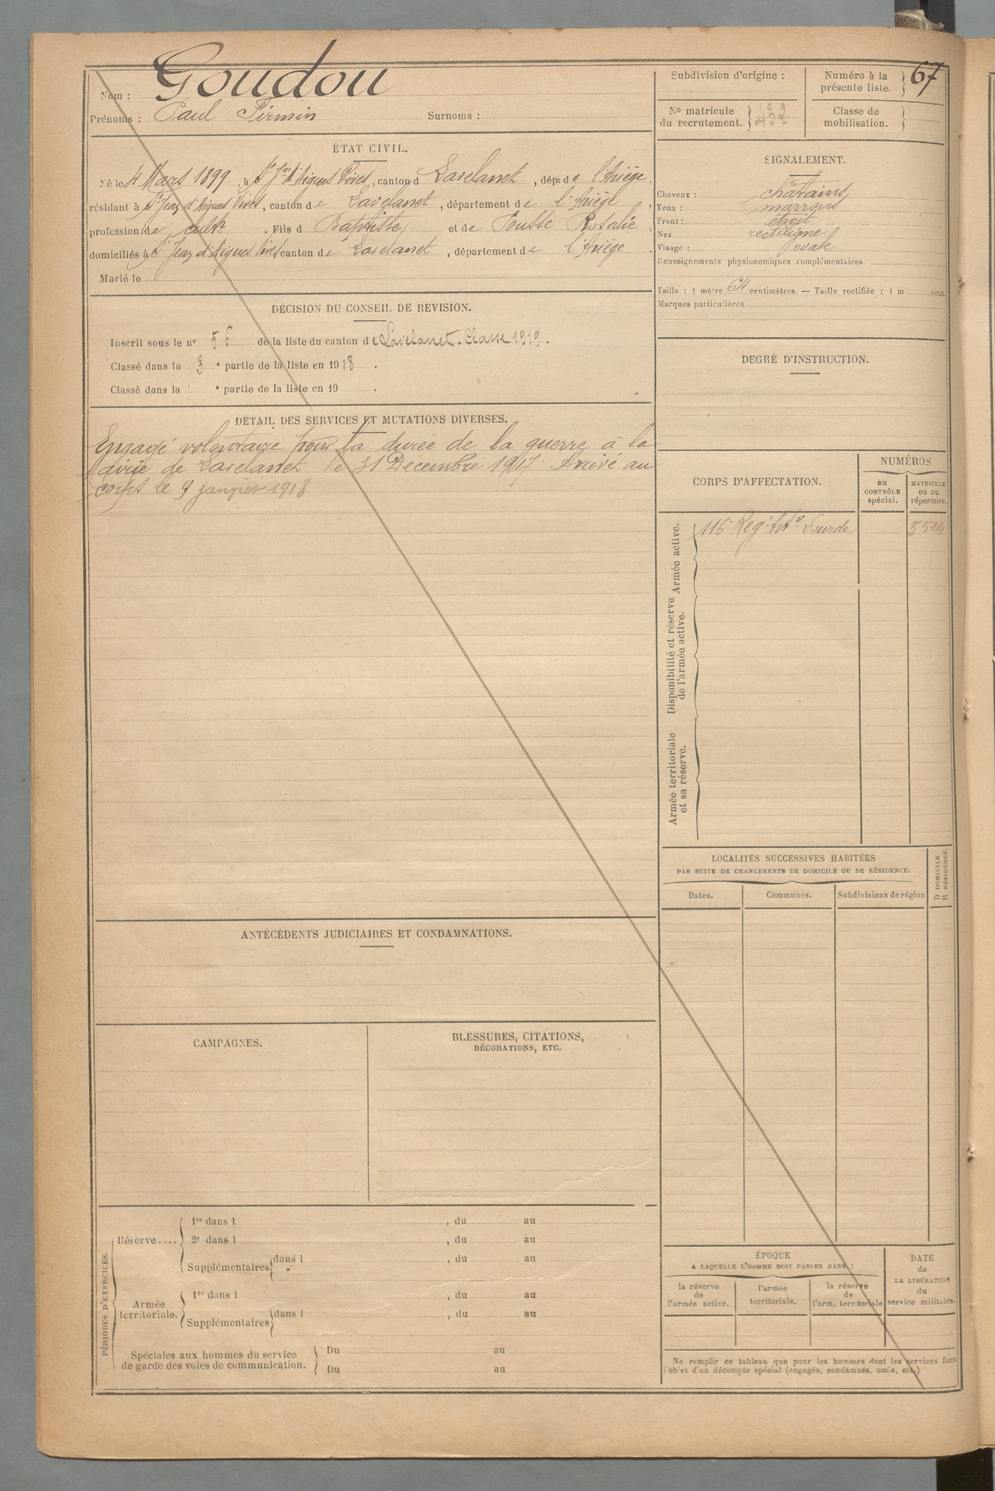 Nom : Goudou
Prénoms : Paul Firmin Surnoms :
ÉTAT CIVIL.
Né le 4 Mars 1899, à St Jean d'Aigues Vives, canton d Lavelanet, dépt de l'Ariège,
résidant à St Jean d'Aigues Vives, canton de Lavelanet, département de l'Ariège,
profession de cultr. Fils d Baptiste, et de Rosalie,
domiciliés à St Jean d'Aigues Vives canton de Lavelanet, département de l'Ariège.
Marié le
DÉCISION DU CONSEIL DE REVISION.
Inscrit sous le no 56 de la liste du canton de Lavelanet. Classe 1919.
Classé dans la 3e partie de la liste en 1918.
Classé dans la e partie de la liste en 19 .
DÉTAIL DES SERVICES ET MUTATIONS DIVERSES.
Engagé volontaire pour la durée de la guerre à la
Mairie de Lavelanet le 31 Décembre 1917. Arrivé au
corps le 9 janvier 1918
ANTÉCÉDENTS JUDICIAIRES ET CONDAMNATIONS.
CAMPAGNES.
BLESSURES, CITATIONS,
DÉCORATIONS, ETC.
PÉRIODES D'EXERCICES.
Réserve....
1re dans l , du au
2e dans l , du au
Supplémentaires dans l , du au
Armée
territoriale.
1re dans l , du au
Supplémentaires dans l , du au
Spéciales aux hommes du service
de garde des voies de communication.
Du au
Du au
Subdivision d'origine :
Numéro à la
présente liste. 67
No matricule
du recrutement.
Classe de
mobilisation.
SIGNALEMENT.
Cheveux : châtains
Yeux : marrons
Front : étroit
Nez rectiligne
Visage : ovale
Renseignements physionomiques complémentaires
Taille : 1 mètre 64 centimètres. — Taille rectifiée : 1 m cent.
Marques particulières
DEGRÉ D'INSTRUCTION.
CORPS D'AFFECTATION.
NUMÉROS
au
CONTRÔLE
spécial.
MATRICULE
OU AU
répertoire.
Armée active.
116 Regt Artie Lourde 5524
Disponibilité et réserve
de l'armée active.
Armée territoriale
et sa réserve.
LOCALITÉS SUCCESSIVES HABITÉES
PAR SUITE DE CHANGEMENTS DE DOMICILE OU DE RÉSIDENCE.
D DOMICILE
R RÉSIDENCE.
Dates. Communes. Subdivisions de région
ÉPOQUE
A LAQUELLE L'HOMME DOIT PASSER DANS :
la réserve
de
l'armée active.
l'armée
territoriale.
la réserve
de
l'arm. territoriale
DATE
de
LA LIBÉRATION
du
service militaire.
Ne remplir ce tableau que pour les hommes dont les services font
l'objet d'un décompte spécial (engagés, condamnés, omis, etc.)